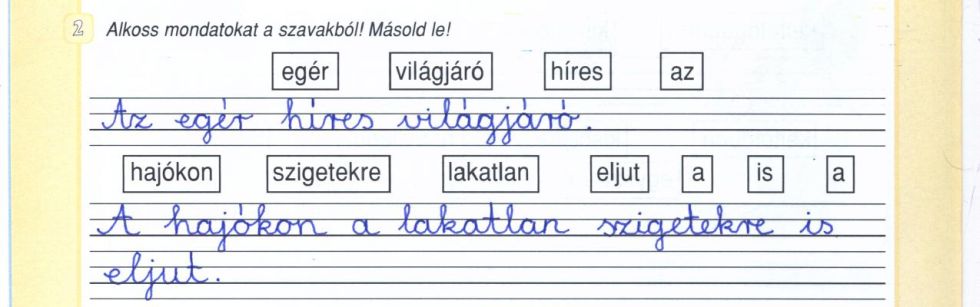 2 Alkoss mondatokat a szavakból! Másold le!
egér világjáró híres az
Az egér híres világjáró.
hajókon szigetekre lakatlan eljut a is a
A hajókon a lakatlan szigetekre is
eljut.